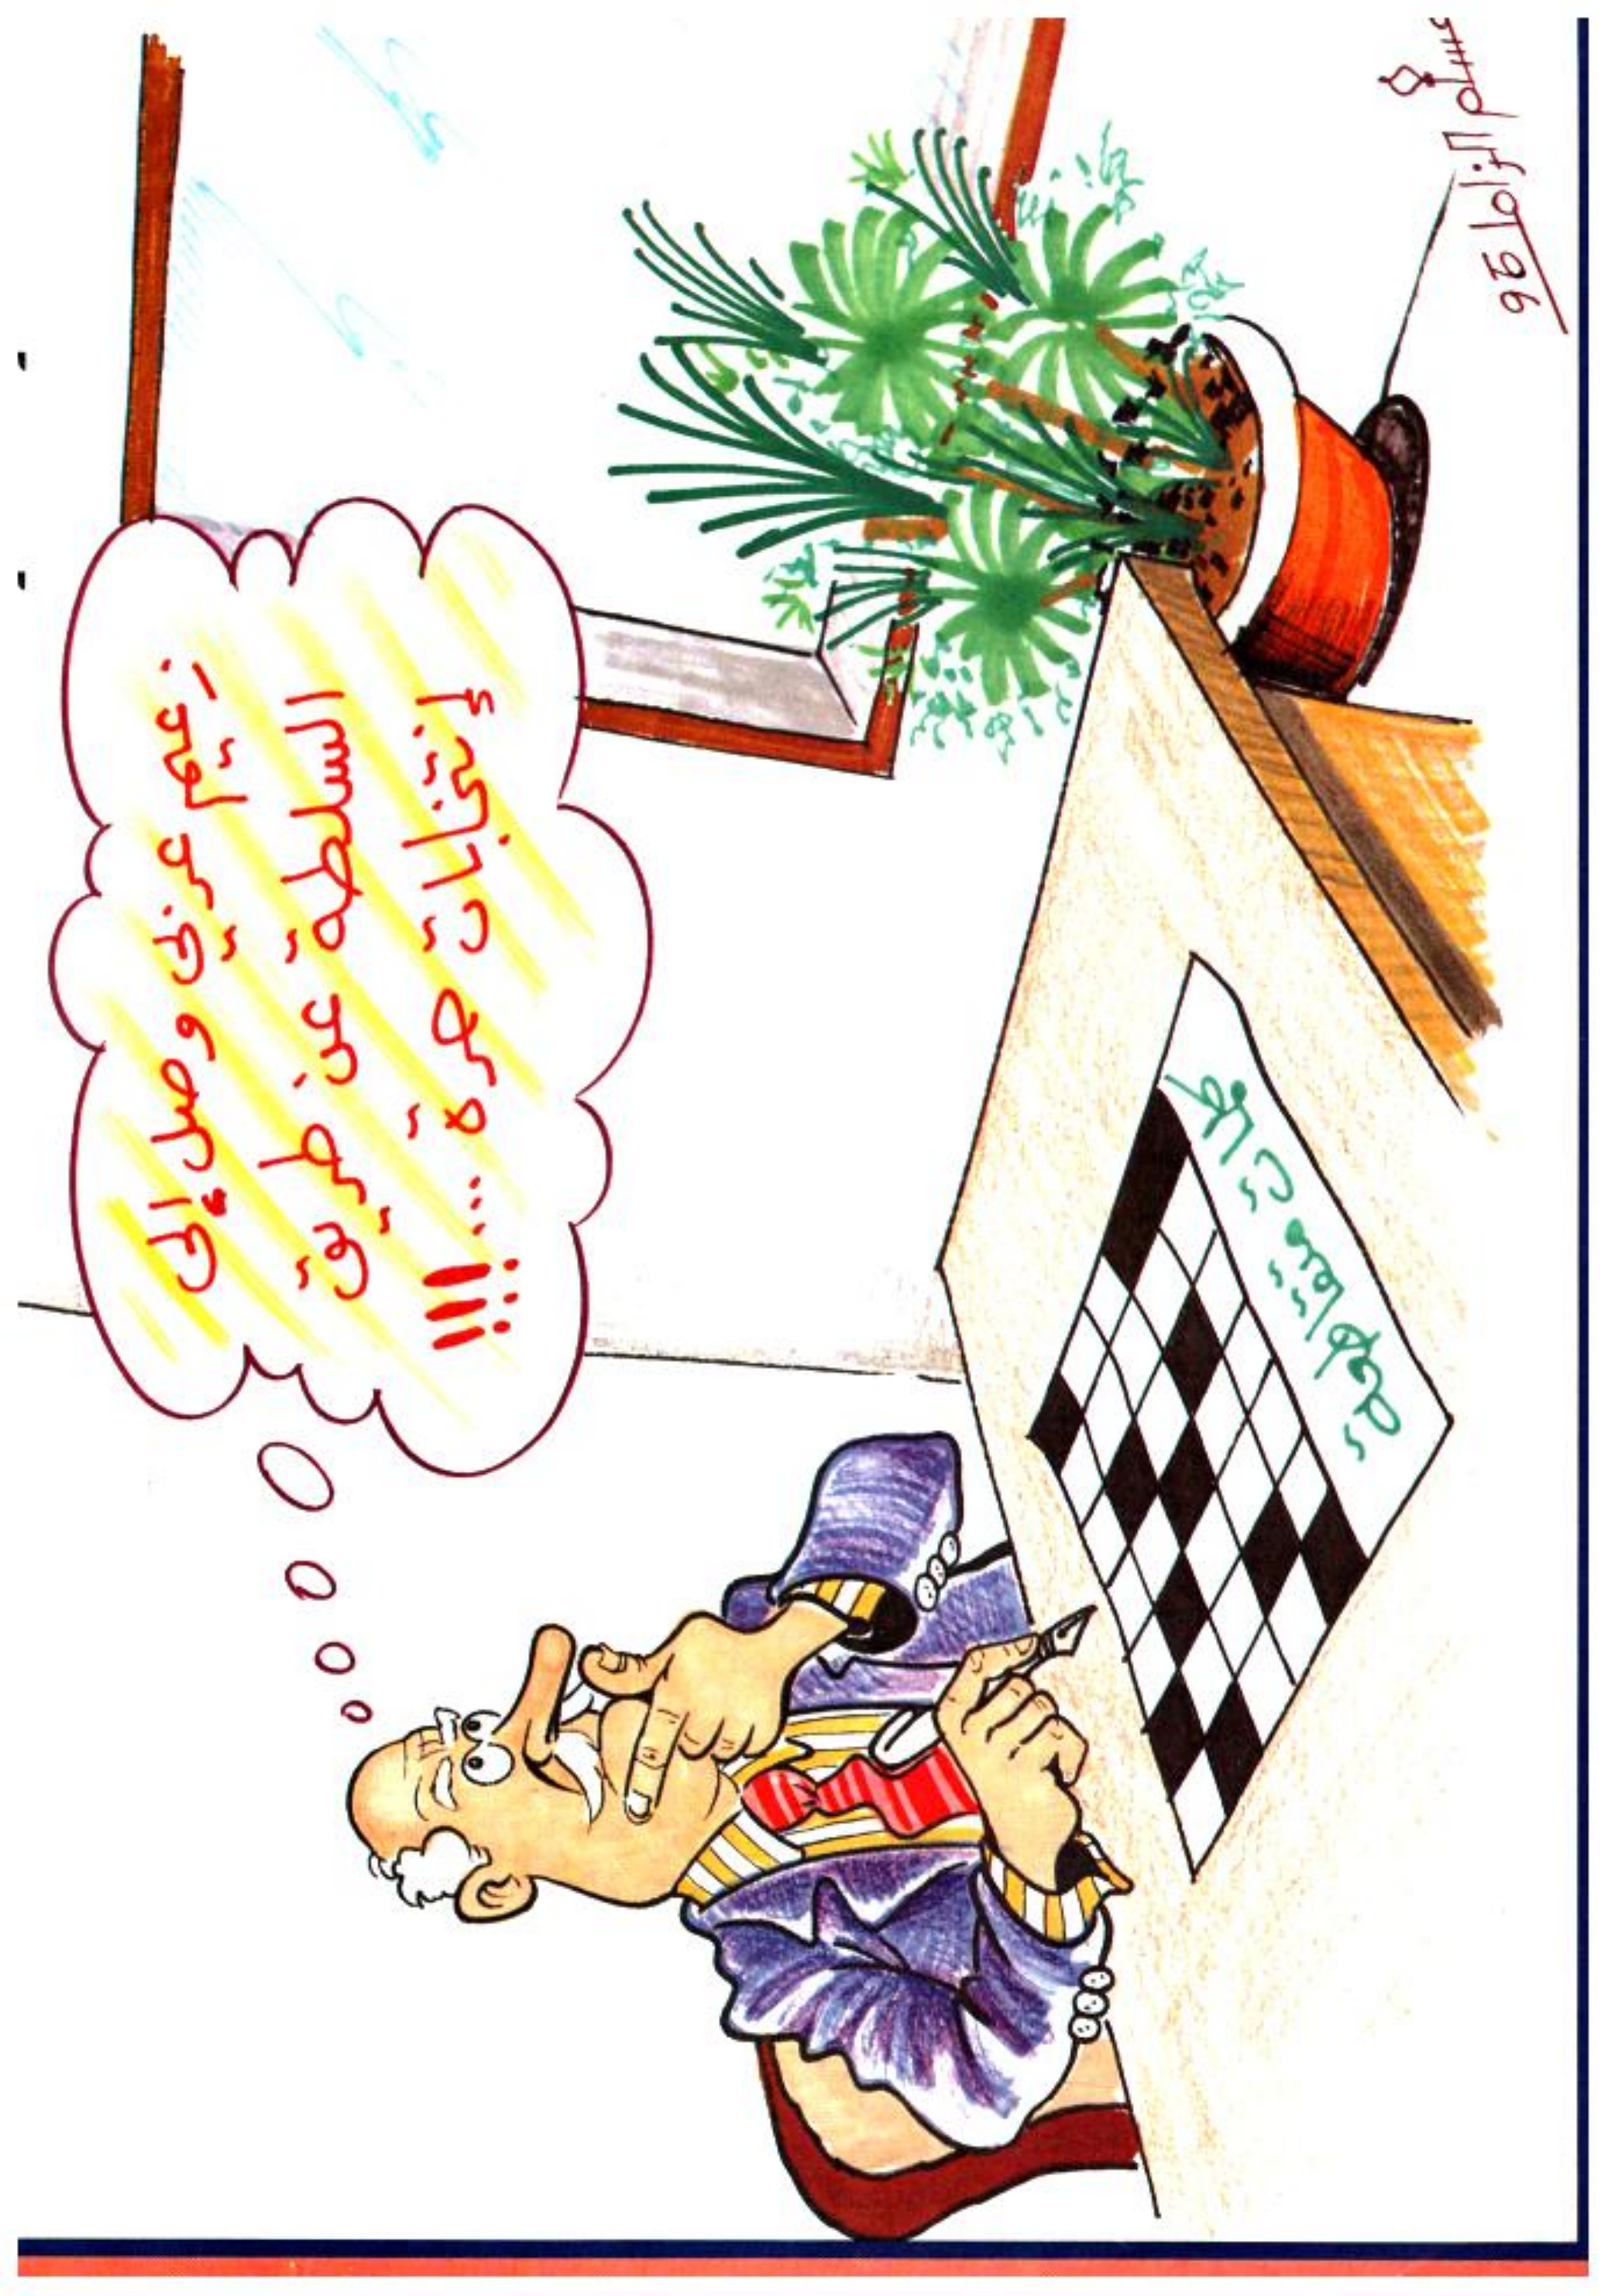 زعيم عربي وصل إلى
السلطة عن طريق
إنتخابات حرة ...!!!
كلمات متقاطعة
96